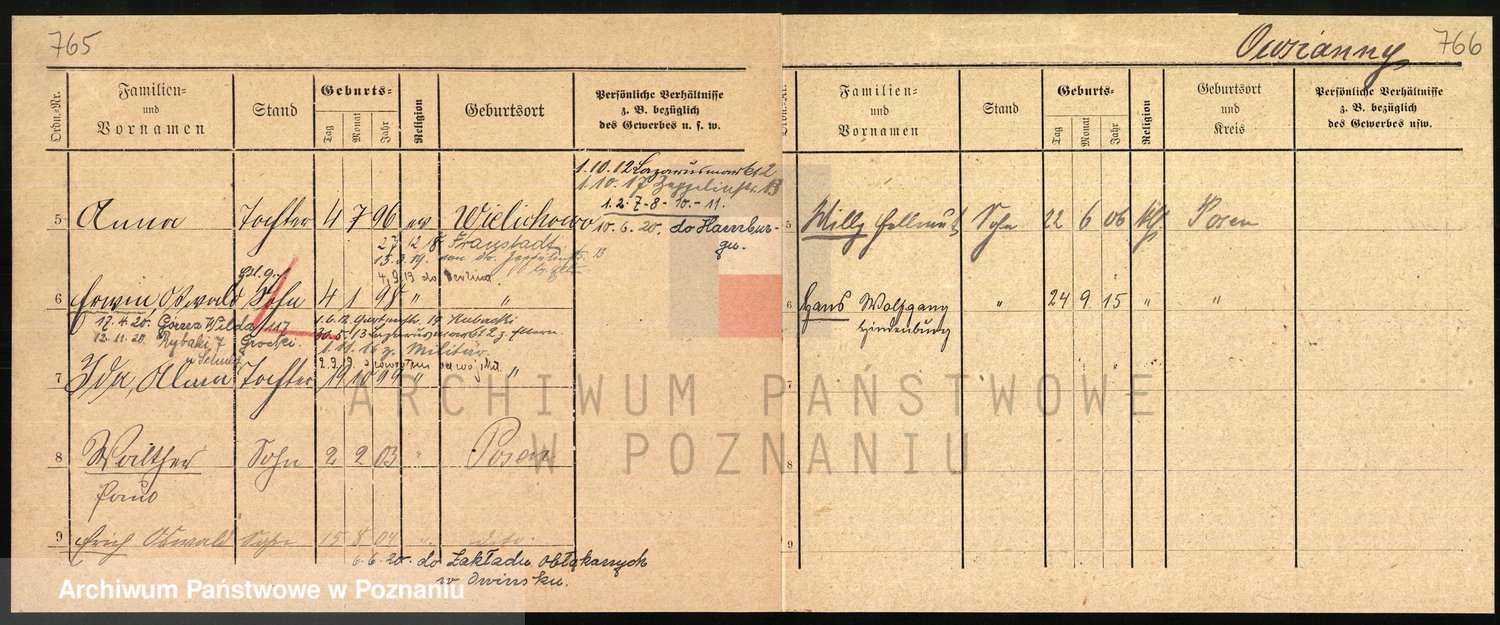 765
Ordn.-Nr.
Familien- und Vornamen
Stand
Geburts-
Tag Monat Jahr
Religion
Geburtsort
Persönliche Verhältnisse z. B. bezüglich des Gewerbes u. s. w.
1.10.12 Lazarusmarkt 2
1.10.17 Zeppelinstr. 13
1.2.7-8-10.-11.
5 Anna Tochter 4 7 96 ev Wielichowo 10.6.20. do Hamburgu.
27.12.18 Fraustadt
15.3.19. von do. Zeppelinstr. 13
4.9.19 do Berlina
6 Erwin, Oswald Sohn 4 1 98 " "
17.4.20. Górna Wilda 117
12.11.20. Rybaki 7 Grocki.
1.11.16 z. Militär
7 Ida, Alma Tochter 19 10 99 " "
8 Walther Sohn 2 2 03 " Posen
9 Erich Oswald Sohn 15 8 04 " dito
6.6.20. do Zakładu obłąkanych
w Owinsku.
Owsianny 766
Ordn.-Nr.
Familien- und Vornamen
Stand
Geburts-
Tag Monat Jahr
Religion
Geburtsort und Kreis
Persönliche Verhältnisse z. B. bezüglich des Gewerbes usw.
5 Willy Hellmut Sohn 22 6 06 Posen
6 Hans Wolfgang " 24 9 15 " "
Hindenburg
7
8
9
ARCHIWUM PAŃSTWOWE
W POZNANIU
Archiwum Państwowe w Poznaniu